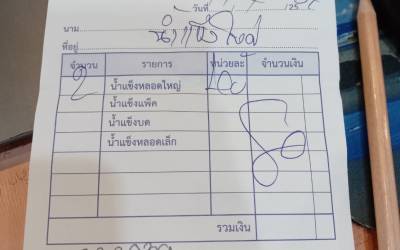 วันที่ /25
นาม น้ำแข็งใหม่
ที่อยู่
จำนวน รายการ หน่วยละ จำนวนเงิน
2 น้ำแข็งหลอดใหญ่ 40 80
น้ำแข็งแพ็ค
น้ำแข็งบด
น้ำแข็งหลอดเล็ก
รวมเงิน